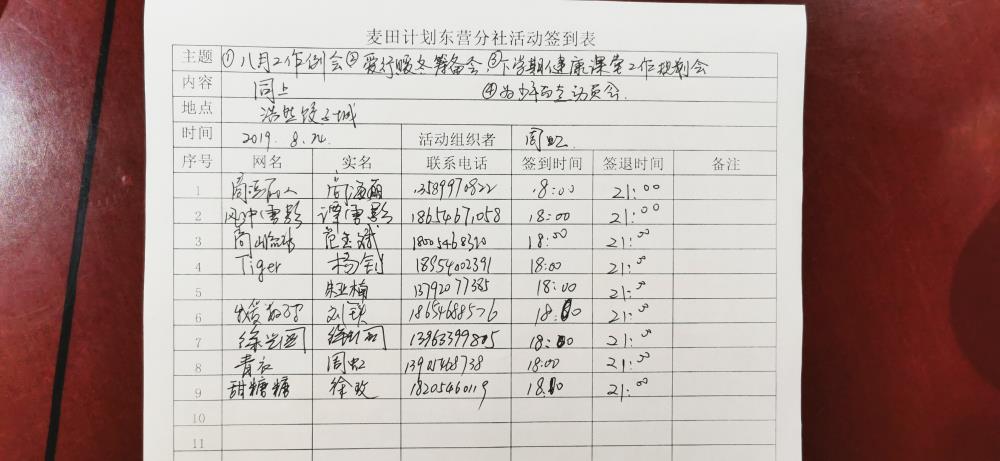 麦田计划东营分社活动签到表
主题 ①八月工作例会②爱行暖冬筹备会③下学期健康课堂工作规划会
内容 同上 ④为少年而走动员会.
地点 浩哲饺子城
时间 2019.8.24. 活动组织者 周虹
序号 网名 实名 联系电话 签到时间 签退时间 备注
1 13589970822 18:00 21:00
2 风中雪影 谭雪影 18654671058 18:00 21:00
3 18005468310 18:00 21:00
4 Tiger 杨钊 18954002391 18:00 21:00
5 朱亚楠 13792077385 18:00 21:00
6 18654688576 18:00 21:00
7 13963399805 18:00 21:00
8 青衣 周虹 13905468738 18:00 21:00
9 甜糖糖 徐玫 18205460119 18:00 21:00
10
11